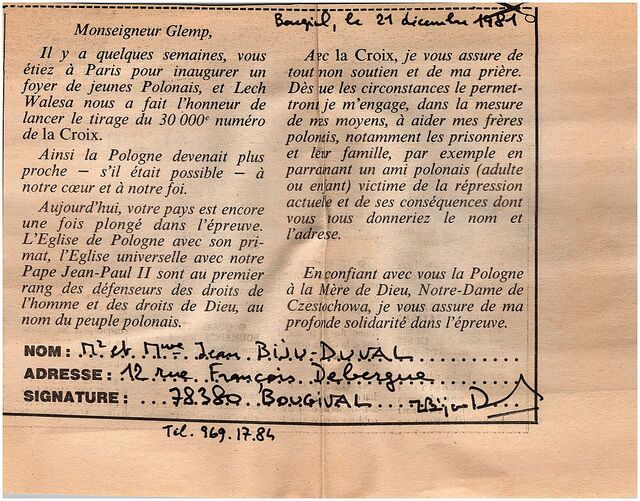 Bougival, le 21 décembre 1981
Monseigneur Glemp,
Il y a quelques semaines, vous
étiez à Paris pour inaugurer un
foyer de jeunes Polonais, et Lech
Walesa nous a fait l'honneur de
lancer le tirage du 30 000e numéro
de la Croix.
Ainsi la Pologne devenait plus
proche — s'il était possible — à
notre cœur et à notre foi.
Aujourd'hui, votre pays est encore
une fois plongé dans l'épreuve.
L'Eglise de Pologne avec son pri-
mat, l'Eglise universelle avec notre
Pape Jean-Paul II sont au premier
rang des défenseurs des droits de
l'homme et des droits de Dieu, au
nom du peuple polonais.
Avec la Croix, je vous assure de
tout mon soutien et de ma prière.
Dès que les circonstances le permet-
tront je m'engage, dans la mesure
de mes moyens, à aider mes frères
polonais, notamment les prisonniers
et leur famille, par exemple en
parrainant un ami polonais (adulte
ou enfant) victime de la répression
actuelle et de ses conséquences dont
vous nous donneriez le nom et
l'adresse.
En confiant avec vous la Pologne
à la Mère de Dieu, Notre-Dame de
Czestochowa, je vous assure de ma
profonde solidarité dans l'épreuve.
NOM : Mr et Mme Jean BIJU-DUVAL
ADRESSE : 12 rue François Debergue
SIGNATURE : 78.380 BOUGIVAL JBiju D
Tel. 969.17.84